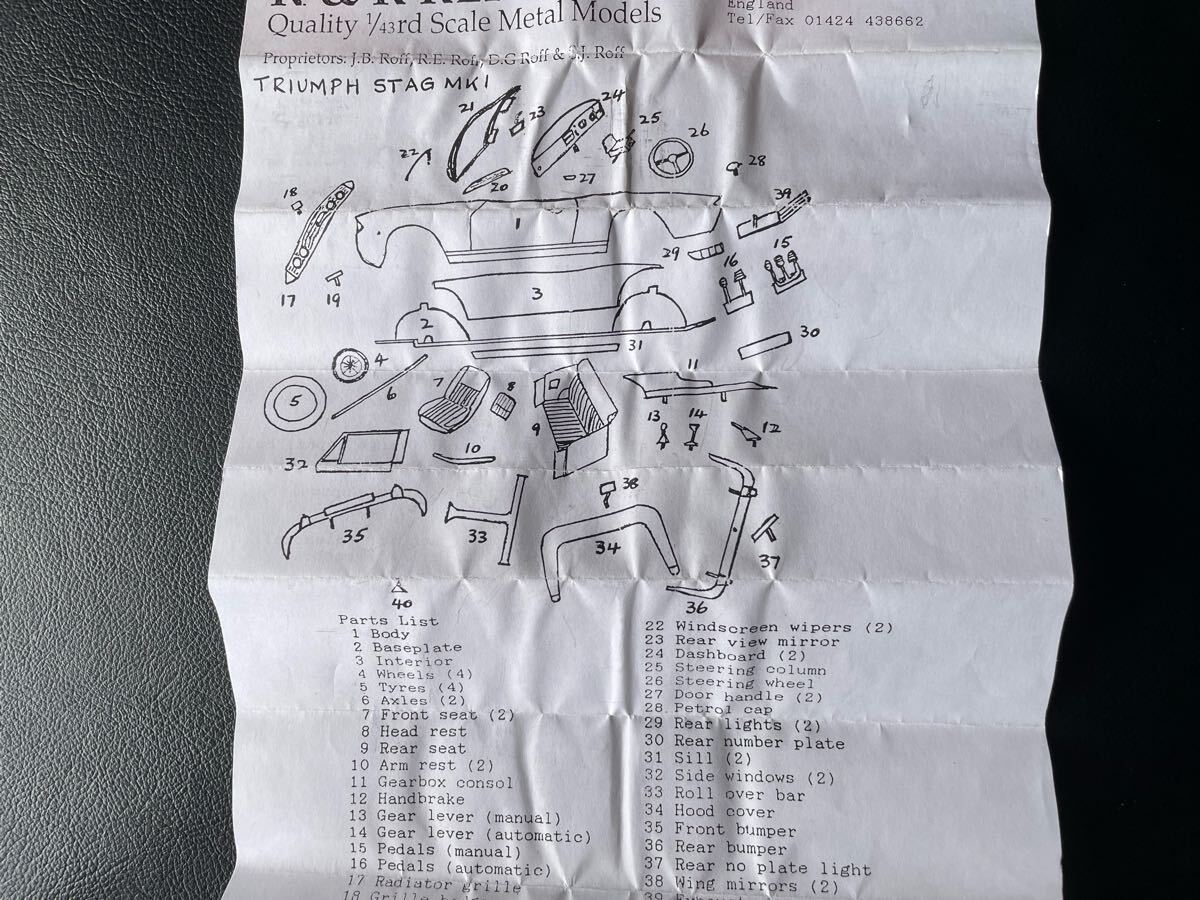 England
Quality 1/43rd Scale Metal Models
Tel/Fax 01424 438662
Proprietors: J.B. Roff, R.E. Roff, D.G Roff & S.J. Roff
TRIUMPH STAG MK1
21
23
24
25
26
22
28
20
27
18
39
1
29
16
15
17
19
3
2
31
30
4
5
6
7
8
9
11
13
14
12
32
10
35
33
38
34
37
36
40
Parts List
1 Body
2 Baseplate
3 Interior
4 Wheels (4)
5 Tyres (4)
6 Axles (2)
7 Front seat (2)
8 Head rest
9 Rear seat
10 Arm rest (2)
11 Gearbox consol
12 Handbrake
13 Gear lever (manual)
14 Gear lever (automatic)
15 Pedals (manual)
16 Pedals (automatic)
17 Radiator grille
18 Grille
22 Windscreen wipers (2)
23 Rear view mirror
24 Dashboard (2)
25 Steering column
26 Steering wheel
27 Door handle (2)
28. Petrol cap
29 Rear lights (2)
30 Rear number plate
31 Sill (2)
32 Side windows (2)
33 Roll over bar
34 Hood cover
35 Front bumper
36 Rear bumper
37 Rear no plate light
38 Wing mirrors (2)
39 Exhaust